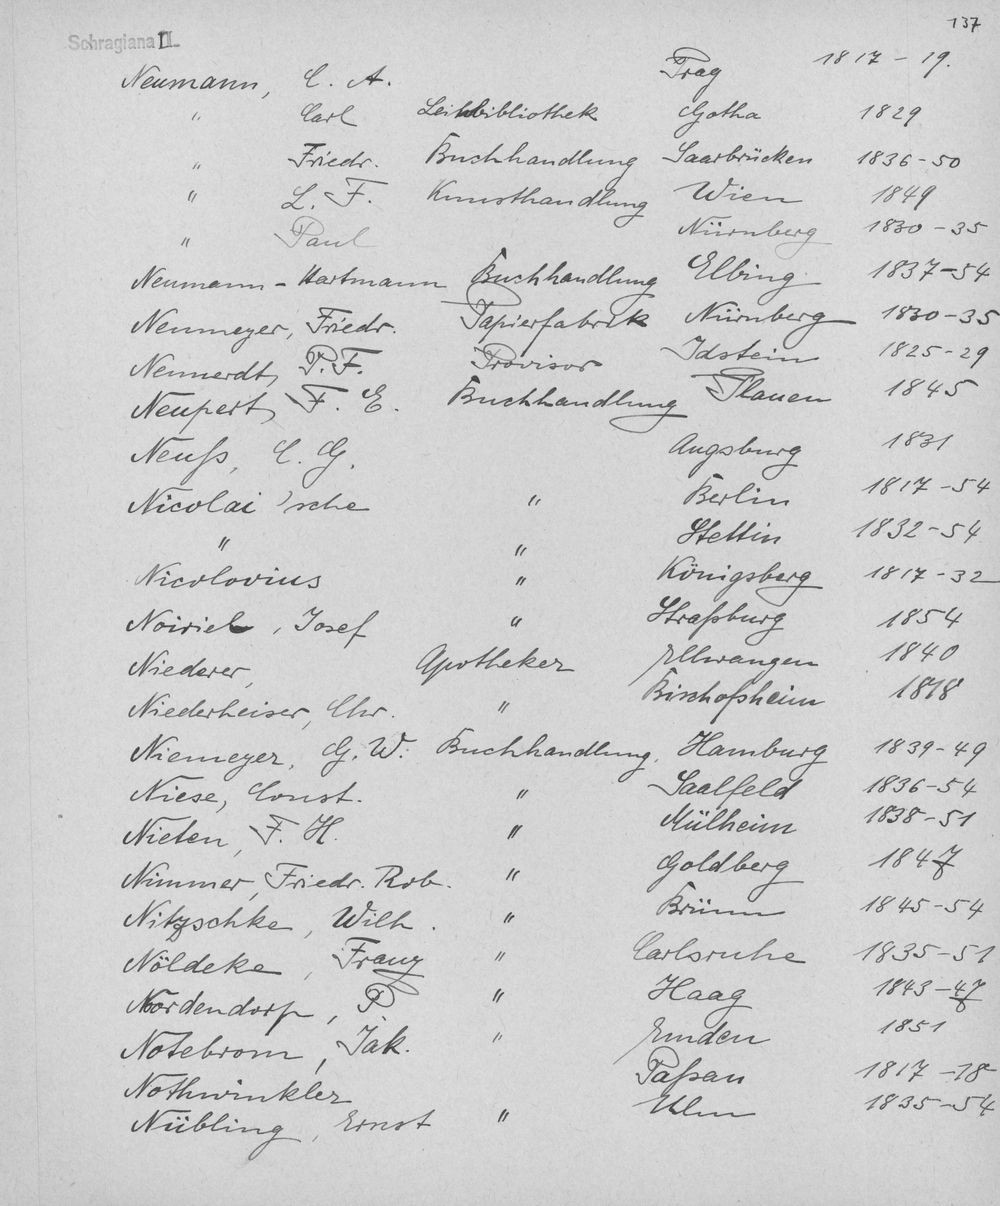 137
Schragiana II.
Neumann, C. A. Prag 1817 - 19.
" Carl Leihbibliothek Gotha 1829
" Friedr. Buchhandlung Saarbrücken 1836-50
" L. F. Kunsthandlung Wien 1849
" Paul Nürnberg 1830-35
Neumann-Hartmann Buchhandlung Elbing 1837-54
Neumeyer, Friedr. Papierfabrik Nürnberg 1830-35
Neunerdt, P. F. Provisor Idstein 1825-29
Neupert, F. E. Buchhandlung Plauen 1845
Neuß, C. G. Augsburg 1831
Nicolai'sche " Berlin 1817-54
" " Stettin 1832-54
Nicolovius " Königsberg 1817-32
Noiriel, Josef " Straßburg 1854
Niederer, Apotheker Ellwangen 1840
Niederheiser, Chr. " Bischofsheim 1818
Niemeyer, G. W. Buchhandlung. Hamburg 1839-49
Niese, Const. " Saalfeld 1836-54
Nieten, F. H. " Mülheim 1838-51
Nimmer, Friedr. Rob. " Goldberg 1847
Nitzschke, Wilh. " Brünn 1845-54
Nöldeke, Franz " Carlsruhe 1835-51
Nordendorp, P " Haag 1843-47
Notebrom, Jak. " Emden 1851
Nothwinkler Paßau 1817-18
Nübling, Ernst " Ulm 1835-54